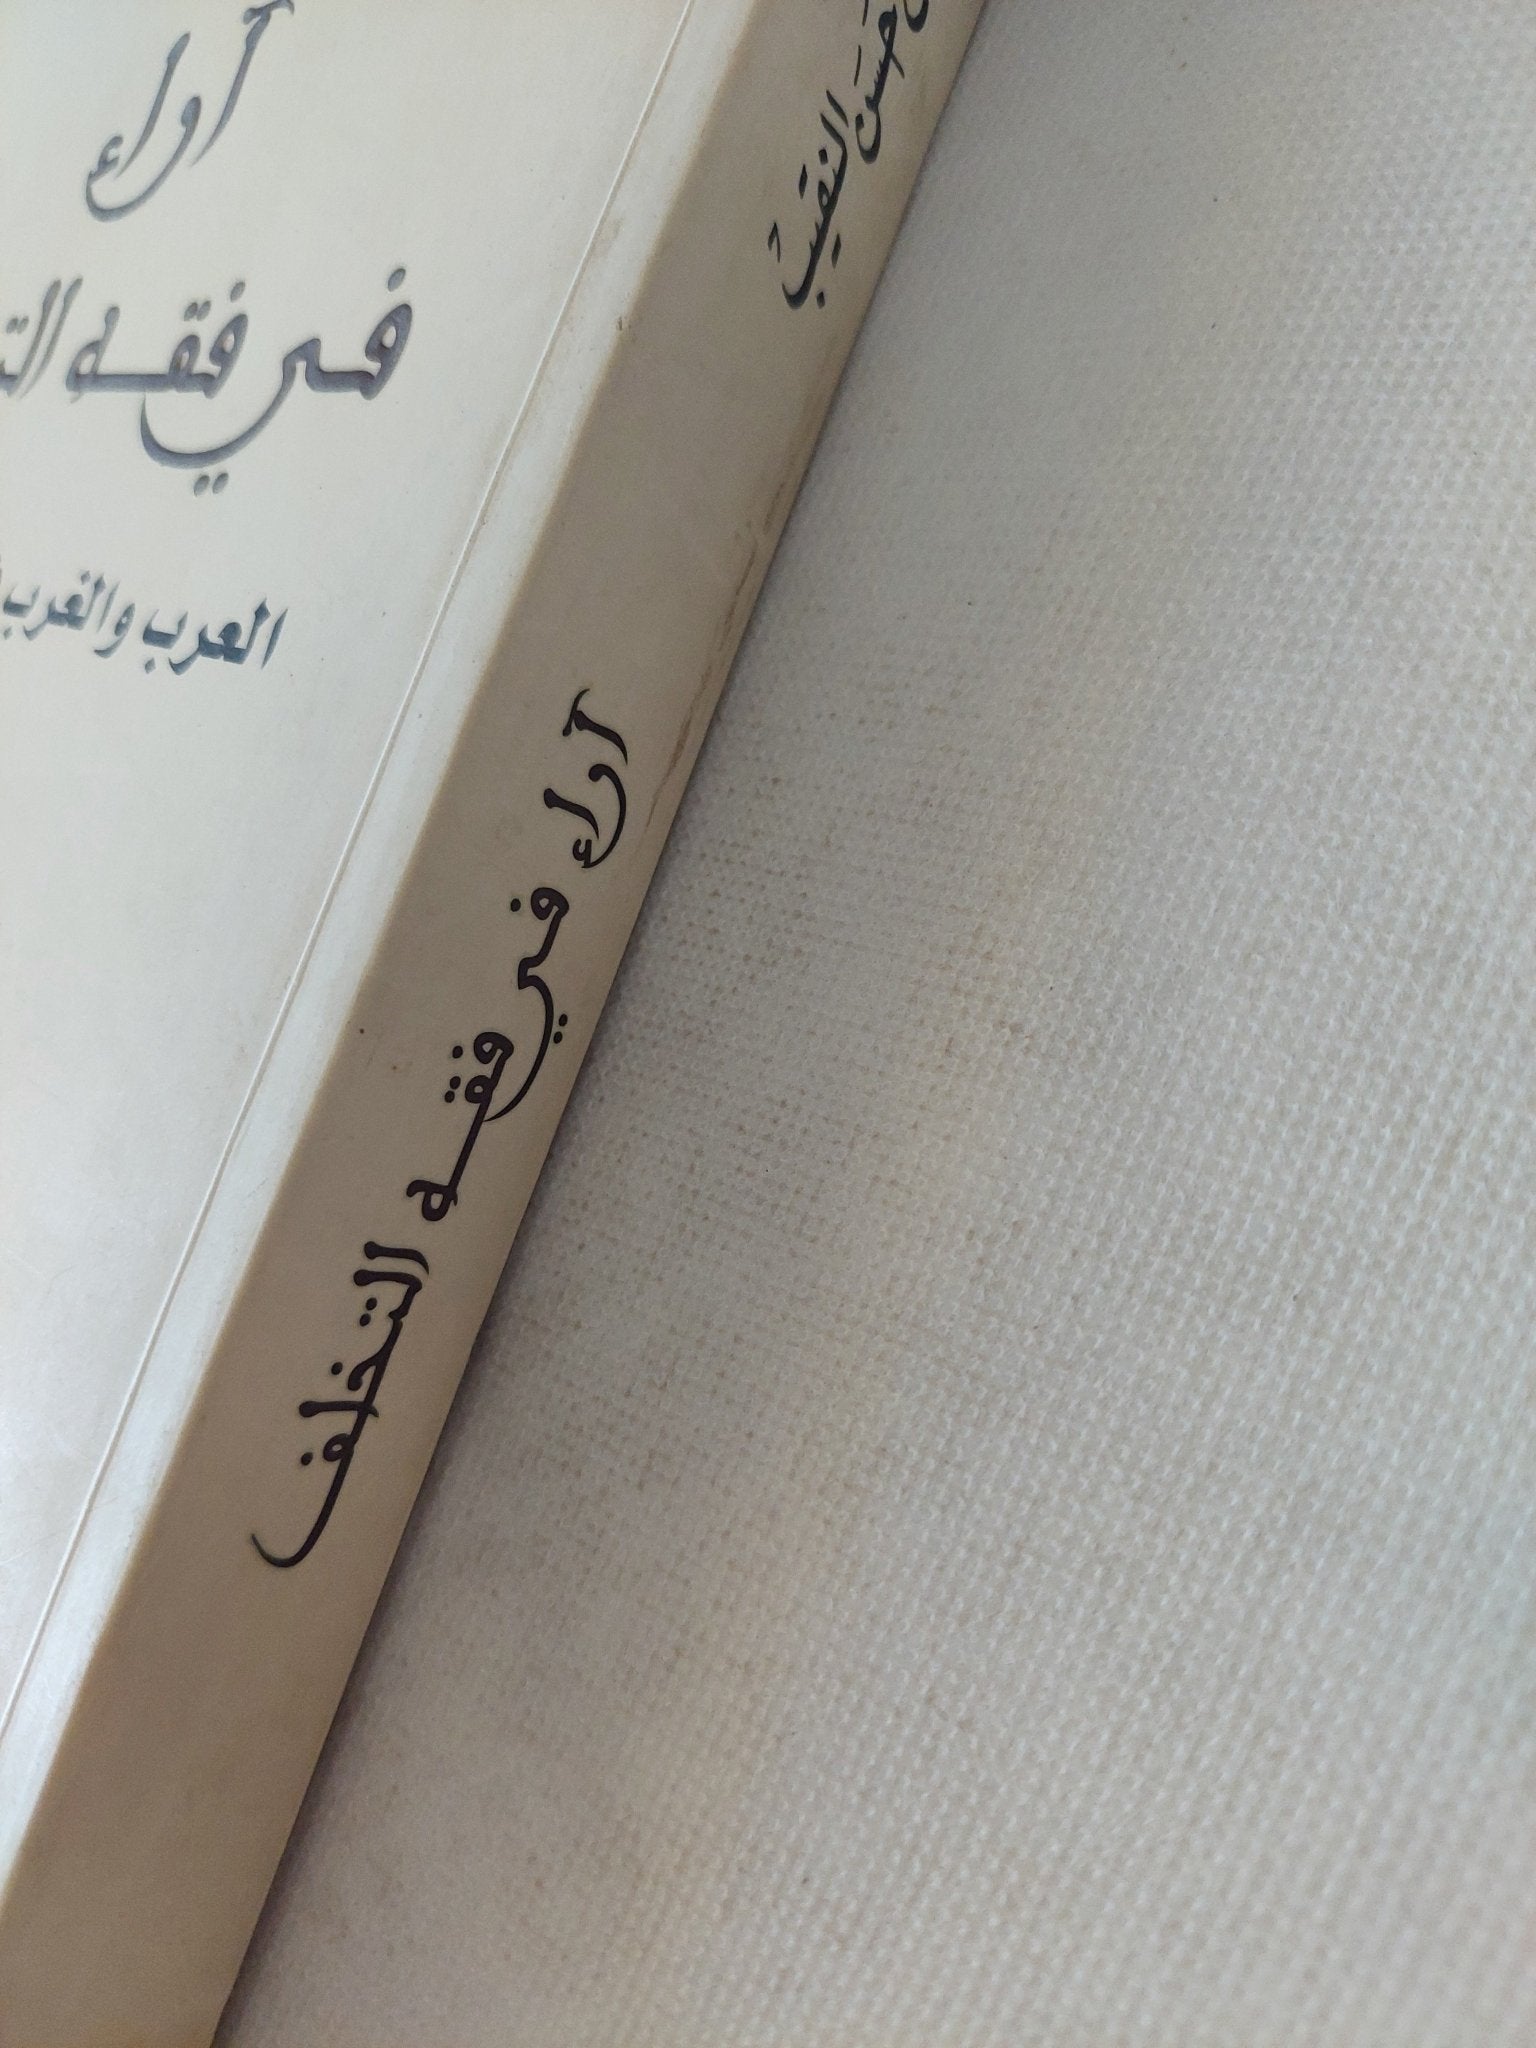 آراء
في فقه
العرب والغرب
حسن النقيب
آراء في فقه التخلف